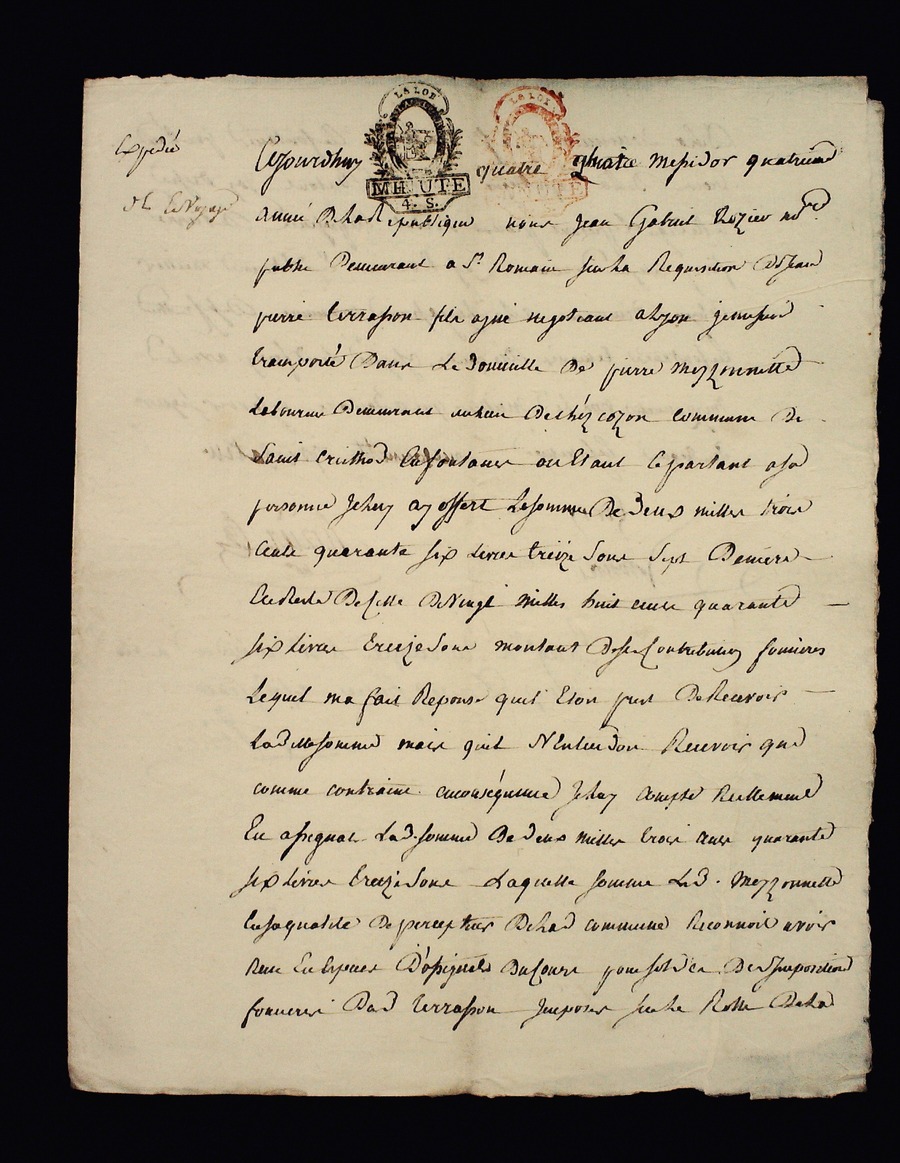 LA LOI
LA LOI
MINUTE
4. S.
Expedié
Cejourdhuy quatre quatre Messidor quatrieme
année De La Republique nous Jean Gabriel Rozier no.re
public Demeurant a St. Romain sur La Requisition De Jean
pierre terrasson fils ayné negotiant a Lyon je me suis
transporté Dans Le Domicille De pierre Mezzonnette
Laboureur Demeurant au lieu De chéz cozon commune De
saint cristhod En fontaner ou Etant Ce parlant a sa
personne Je luy ay offert La somme De Deux milles trois
Cents quarante six Livres treize sous sept Deniers
En Reste De Celle De Vingt milles huit cens quarante
six Livres treize sous montant De ses Contributions foncieres
Lequel ma fait Reponse quil Etoit pret De Recevoir
Lad.tte somme mais quil N'Entendoit Recevoir que
comme contraint en conséquence Je luy Compté Reellement
En assignat Lad. somme De Deux milles trois cens quarante
six Livres treize sous Laquelle somme Led. Mezzonnette
En sa qualité De percepteur De Lad commune Reconnoit avoir
Reçu En Especes D'assignats Du Cours pour solde De Limposition
fonciere Dud terrasson Imposée sur Le Rolle De Lad